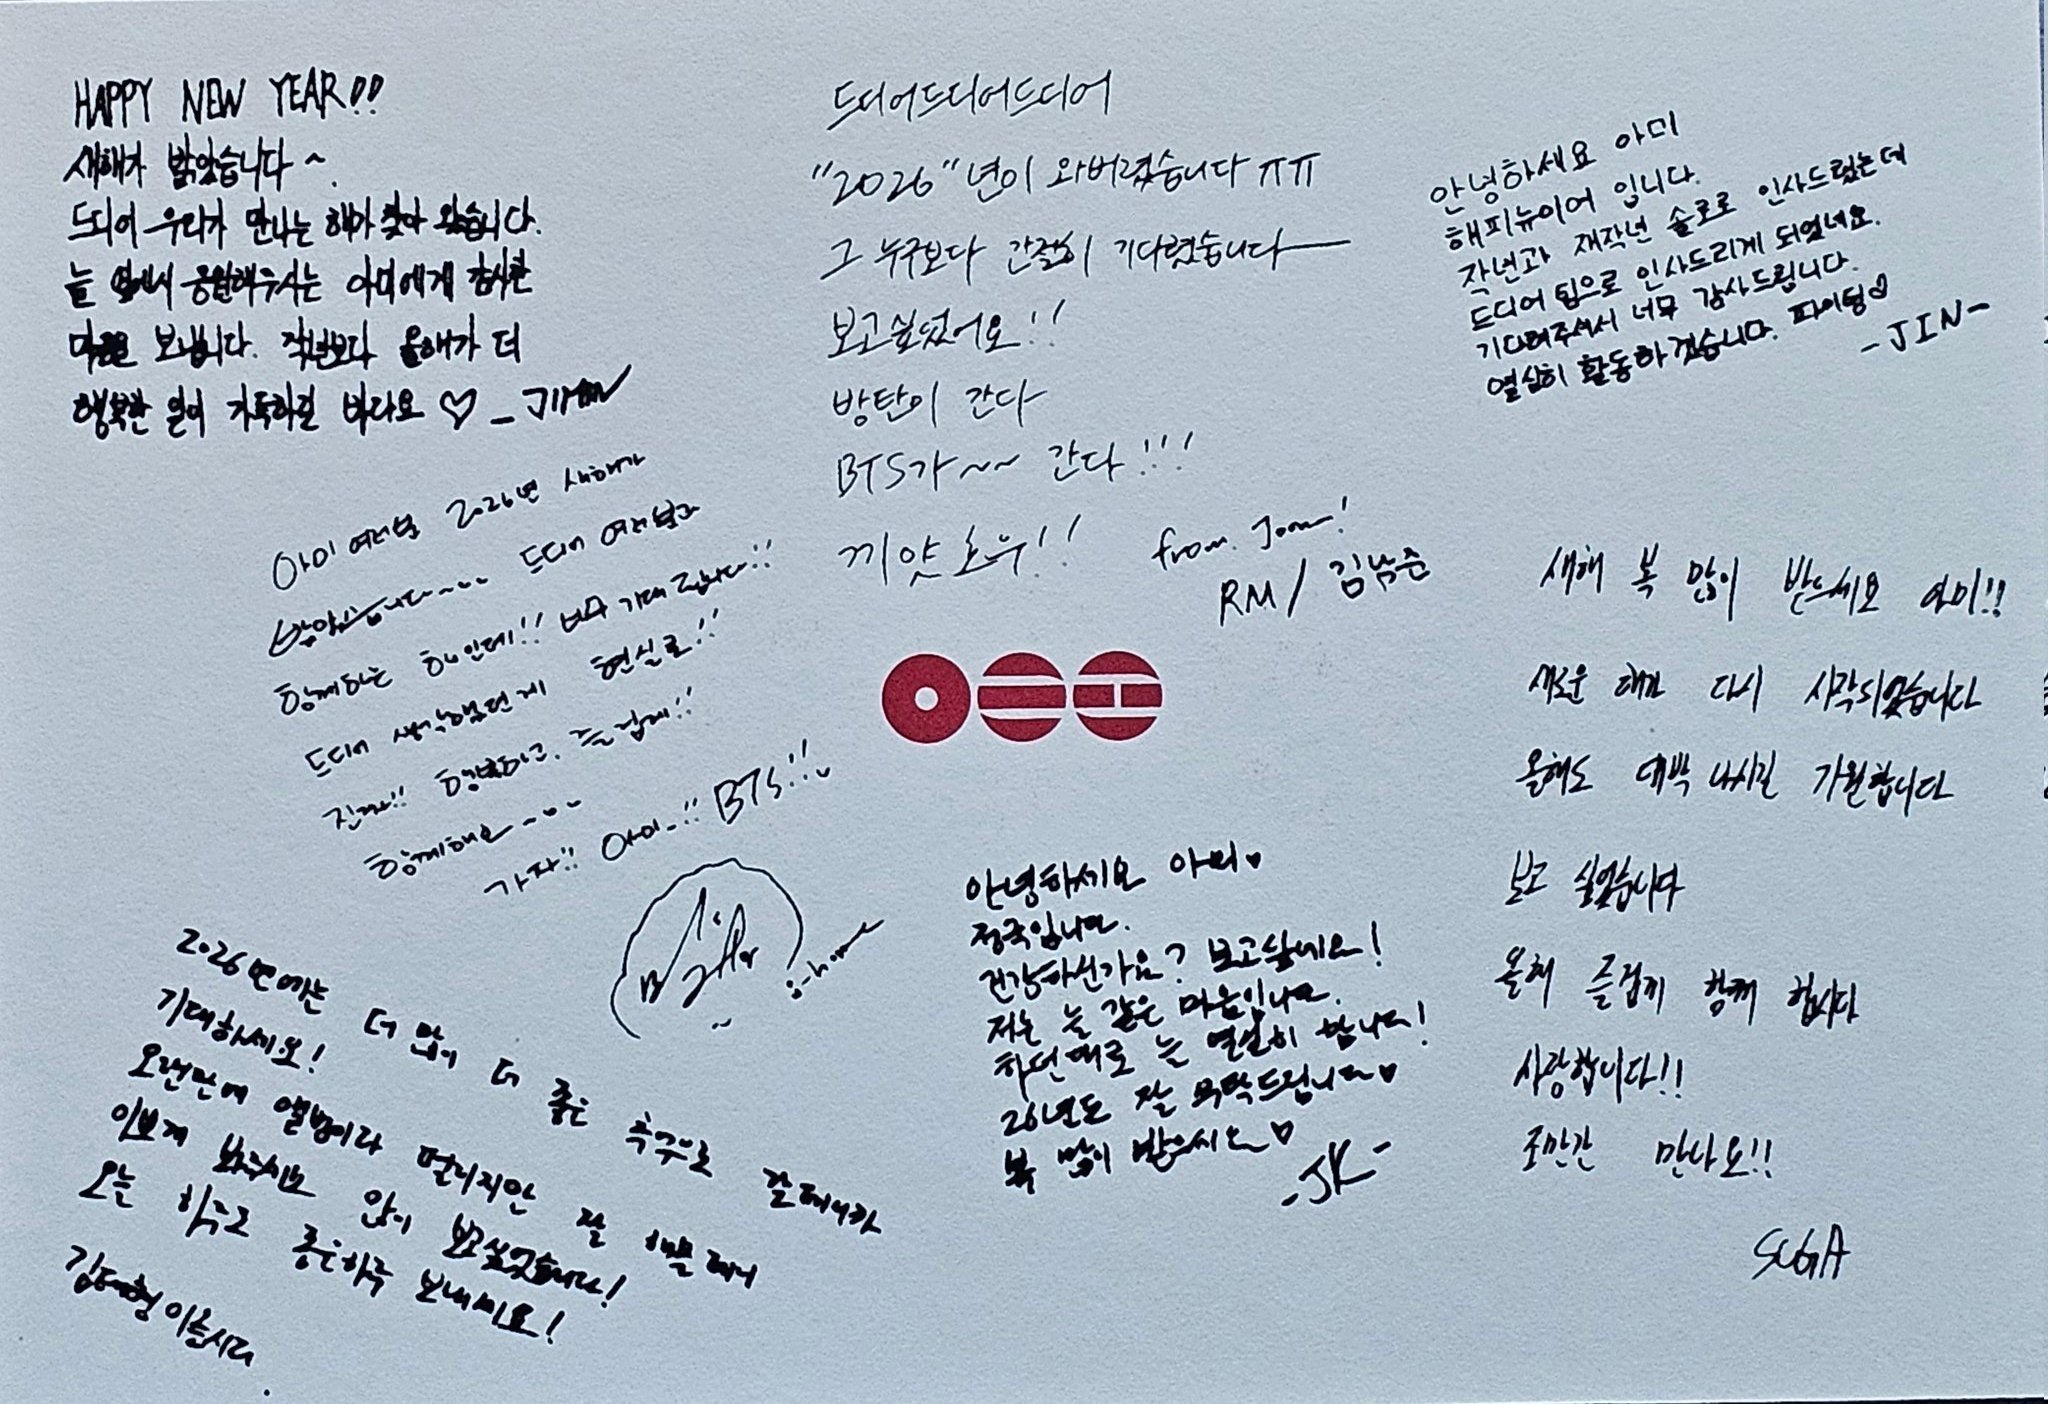 HAPPY NEW YEAR!!
새해가 밝았습니다~.
드디어 우리가 만나는 해가 찾아 왔습니다.
늘 옆에서 응원해주시는 아미에게 감사한
마음을 보냅니다. 작년보다 올해가 더
행복한 일이 가득하길 바라요 ♡ - JIMIN
드디어드디어드디어
"2026"년이 와버렸습니다 ㅠㅠ
그 누구보다 간절히 기다렸습니다
보고싶었어요!!
방탄이 간다
BTS가~~ 간다!!!
끼얏호우!! from. Joon!
RM / 김남준
안녕하세요 아미
해피뉴이어 입니다.
작년과 재작년 솔로로 인사드렸는데
드디어 팀으로 인사드리게 되었네요.
기다려주셔서 너무 감사드립니다.
열심히 활동하겠습니다. 파이팅♡
- JIN -
아미 여러분 2026년 새해가
밝았습니다~~~ 드디어 여러분과
함께하는 해인데!! 너무 기대 됩니다!!
드디어 생각했던게 현실로!!
진짜!! 행복하고. 즐겁게!!
함께해요~~~
가자!! 아미~!! BTS!!
j-hope
새해 복 많이 받으세요 아미!!
새로운 해가 다시 시작되었습니다
올해도 대박 나시길 기원합니다
보고 싶었습니다
올해 즐겁게 함께 합시다
사랑합니다!!
조만간 만나요!!
SUGA
2026년에는 더 많이 더 좋은 추억으로 갈테니까
기대하세요!
오랜만에 앨범이라 떨리지만 잘 해볼테니
이쁘게 봐주세요 많이 보고싶었습니다!
오늘 하루도 좋은하루 보내세요!
김태형 이올시다.
안녕하세요 아미♥
정국입니다.
건강하신가요? 보고싶네요!
저는 늘 같은 마음입니다.
하던대로 늘 열심히 합니다!
26년도 잘 부탁드립니다♥
복 많이 받으시오♡
- JK -